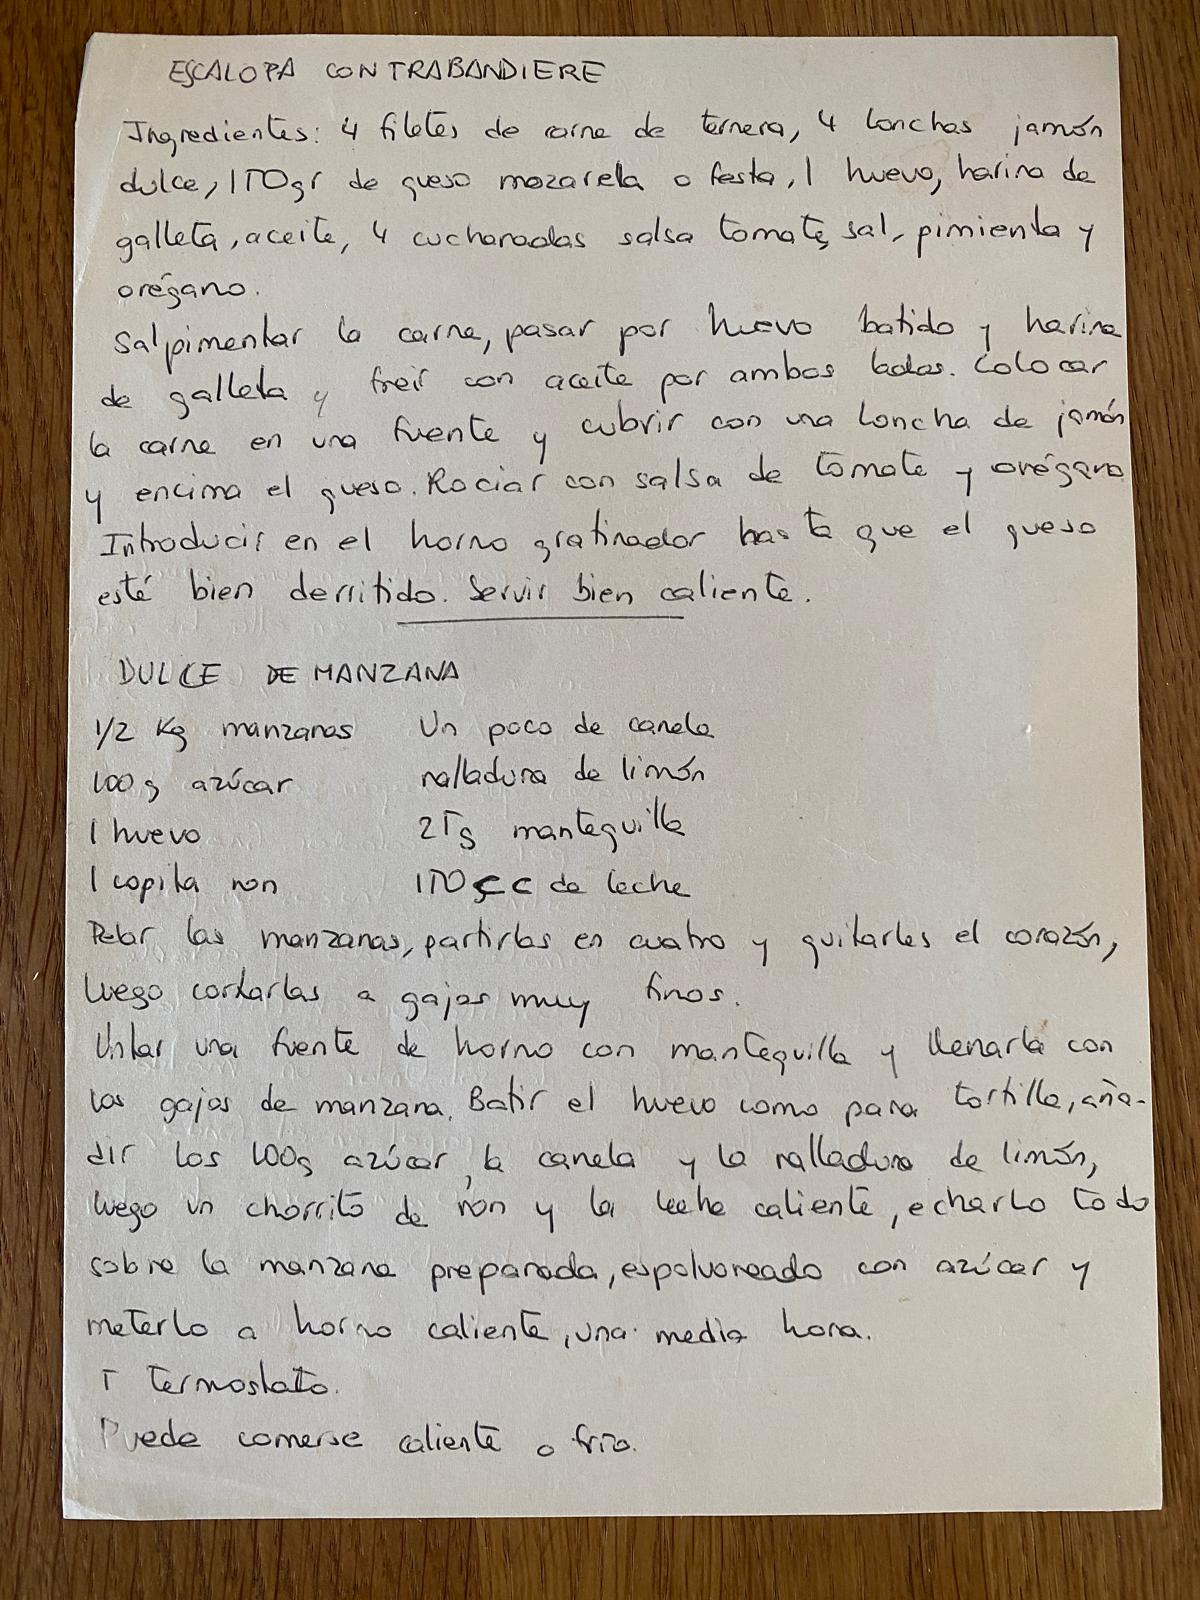 ESCALOPA CONTRABANDIERE
Ingredientes: 4 filetes de carne de ternera, 4 lonchas jamón
dulce, 150gr de queso mozarela o festa, 1 huevo, harina de
galleta, aceite, 4 cucharadas salsa tomate, sal, pimienta y
orégano.
Salpimentar la carne, pasar por huevo batido y harina
de galleta y freir con aceite por ambos lados. Colocar
la carne en una fuente y cubrir con una loncha de jamón
y encima el queso. Rociar con salsa de tomate y orégano
Introducir en el horno gratinador hasta que el queso
esté bien derritido. Servir bien caliente.
DULCE DE MANZANA
1/2 Kg manzanas Un poco de canela
100g azúcar ralladura de limón
1 huevo 25g mantequilla
1 copita ron 150 cc de leche
Pelar las manzanas, partirlas en cuatro y quitarles el corazón,
luego cortarlas a gajos muy finos.
Untar una fuente de horno con mantequilla y llenarla con
los gajos de manzana. Batir el huevo como para tortilla, aña-
dir los 100g azúcar, la canela y la ralladura de limón,
luego un chorrito de ron y la leche caliente, echarlo todo
sobre la manzana preparada, espolvoreado con azúcar y
meterlo a horno caliente, una media hora.
5 termostato.
Puede comerse caliente o frio.